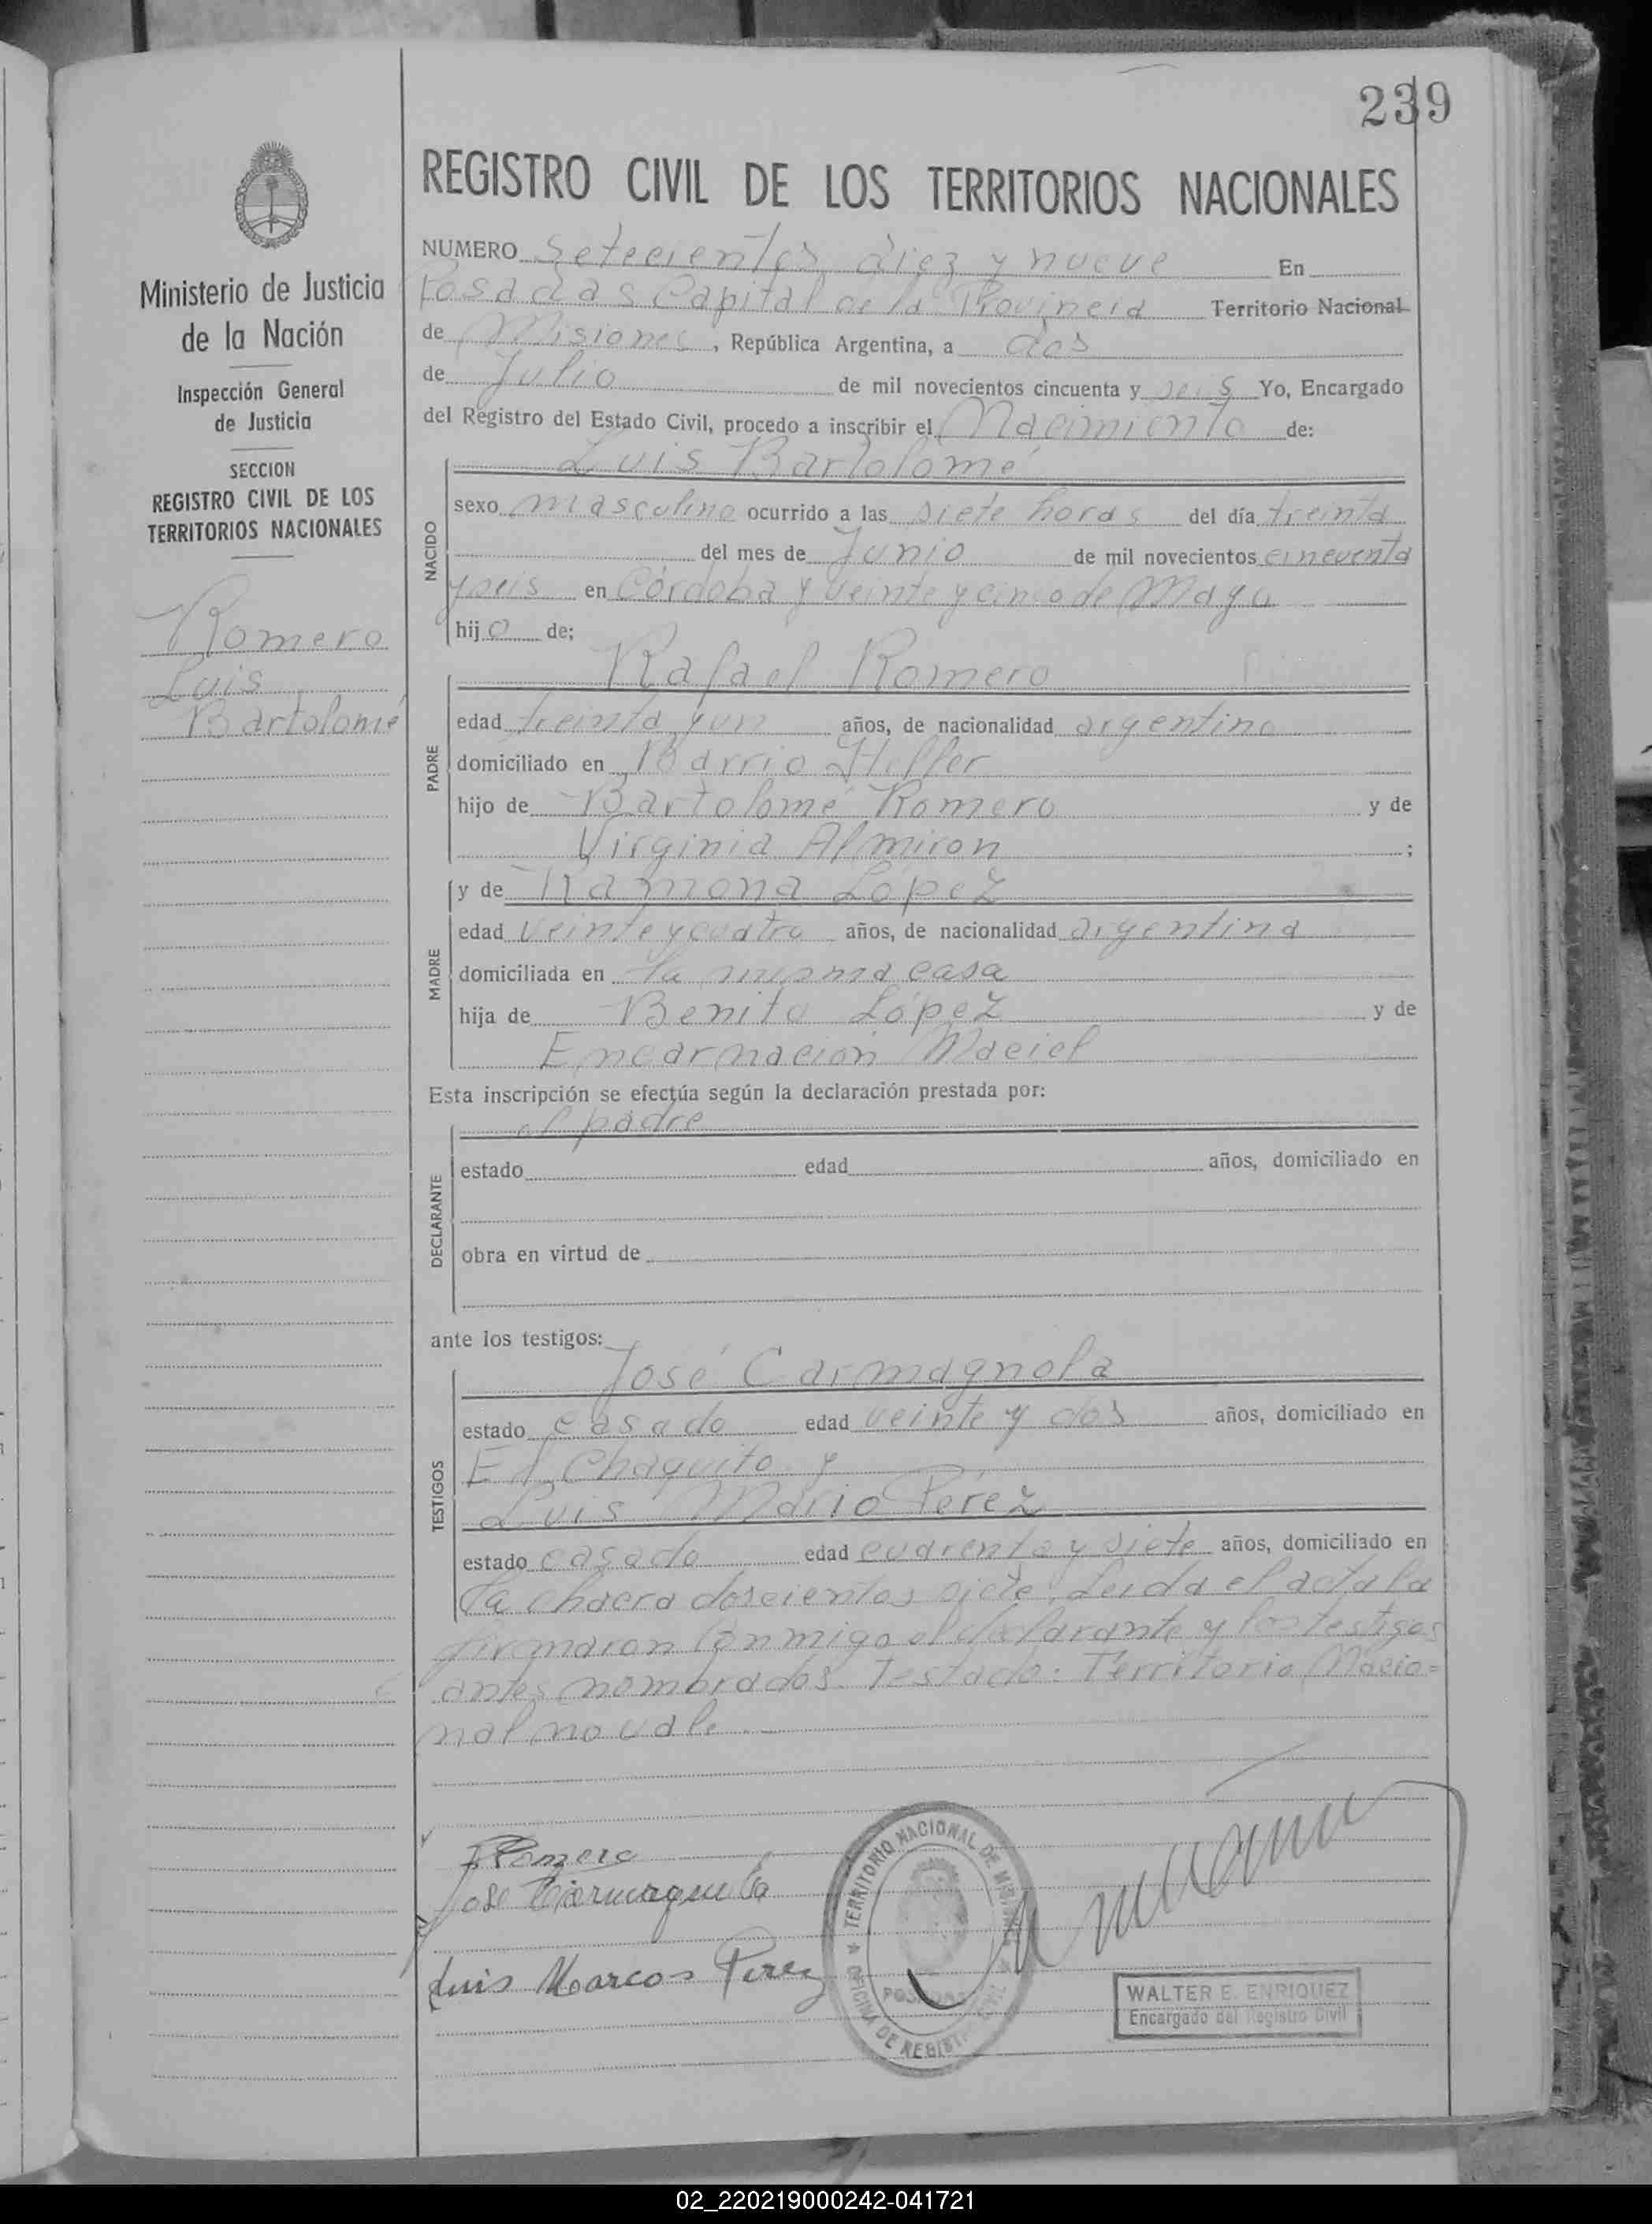 239
REGISTRO CIVIL DE LOS TERRITORIOS NACIONALES
Ministerio de Justicia
de la Nación
Inspección General
de Justicia
SECCION
REGISTRO CIVIL DE LOS
TERRITORIOS NACIONALES
Romero
Luis
Bartolomé
NUMERO Setecientos diez y nueve En
Posadas Capital de la Provincia Territorio Nacional
de Misiones, República Argentina, a dos
de Julio de mil novecientos cincuenta y seis Yo, Encargado
del Registro del Estado Civil, procedo a inscribir el Nacimiento de:
NACIDO
Luis Bartolomé
sexo masculino ocurrido a las siete horas del día treinta
del mes de Junio de mil novecientos cincuenta
y seis en Córdoba y veinte y cinco de Mayo
hijo de;
PADRE
Rafael Romero
edad treinta y un años, de nacionalidad argentino
domiciliado en Barrio Heller
hijo de Bartolomé Romero y de
Virginia Almiron ;
MADRE
y de Ramona López
edad veinte y cuatro años, de nacionalidad argentina
domiciliada en la misma casa
hija de Benito López y de
Encarnación Maciel
Esta inscripción se efectúa según la declaración prestada por:
DECLARANTE
el padre
estado edad años, domiciliado en
obra en virtud de
ante los testigos:
TESTIGOS
José Carmagnola
estado casado edad veinte y dos años, domiciliado en
El Chaquito y
Luis Mario Pérez
estado casado edad cuarenta y siete años, domiciliado en
la chacra doscientos siete. Leida el acta la
firmaron conmigo el declarante y los testigos
antes nombrados. Testado: Territorio Nacio=
nal no vale.-
Romero
José Carmagnola
Luis Marcos Perez
TERRITORIO NACIONAL DE MISIONES
POSADAS
OFICINA DE REGISTRO CIVIL
WALTER E. ENRIQUEZ
Encargado del Registro Civil
02_220219000242-041721